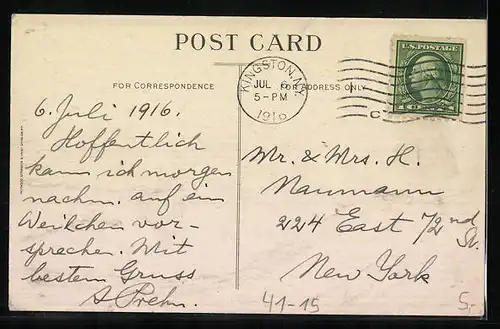 POST CARD
FOR CORRESPONDENCE
FOR ADDRESS ONLY
KINGSTON, N.Y.
JUL 6
5-PM
1916
U.S. POSTAGE
6. Juli 1916.
Hoffentlich
kann ich morgen
nachm. auf ein
Weilchen vor-
sprechen. Mit
bestem Gruss
A Prehn.
Mr. & Mrs. H.
Naumann
224 East 72nd St.
New York
41-15
5.-